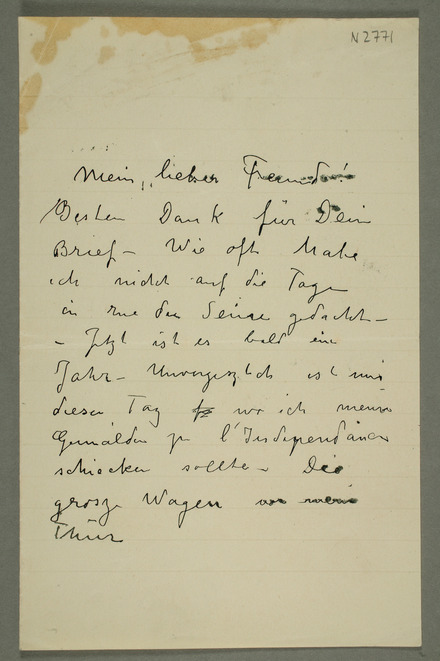 N2771
Mein, lieber Freund!
Besten Dank für Dein
Brief – Wie oft habe
ich nicht auf die Tage
in rue de Seine gedacht –
– Jetzt ist es bald ein
Jahr – Unvergeszlich ist mir
dieser Tag wo ich meine
Gemälden zu l'Independance
schicken sollte – Die
grosze Wagen vor meine
Thür